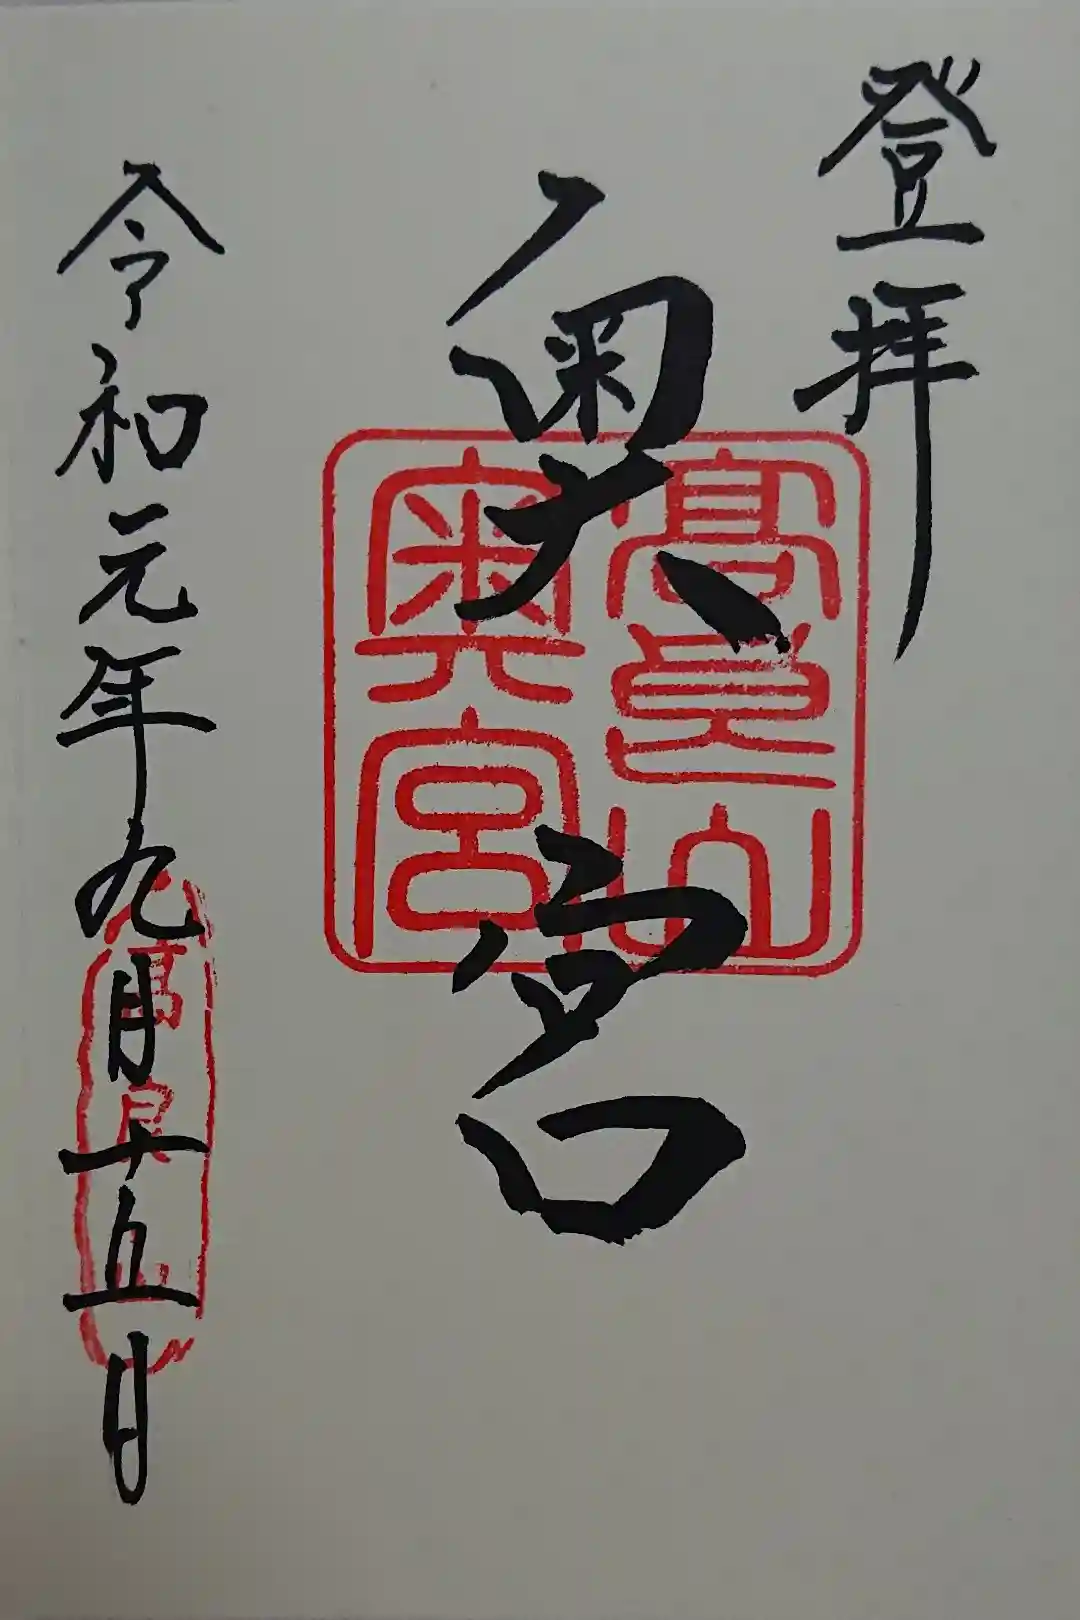 登拝
奥宮
高良山
奥宮
令和元年九月十五日
高良山